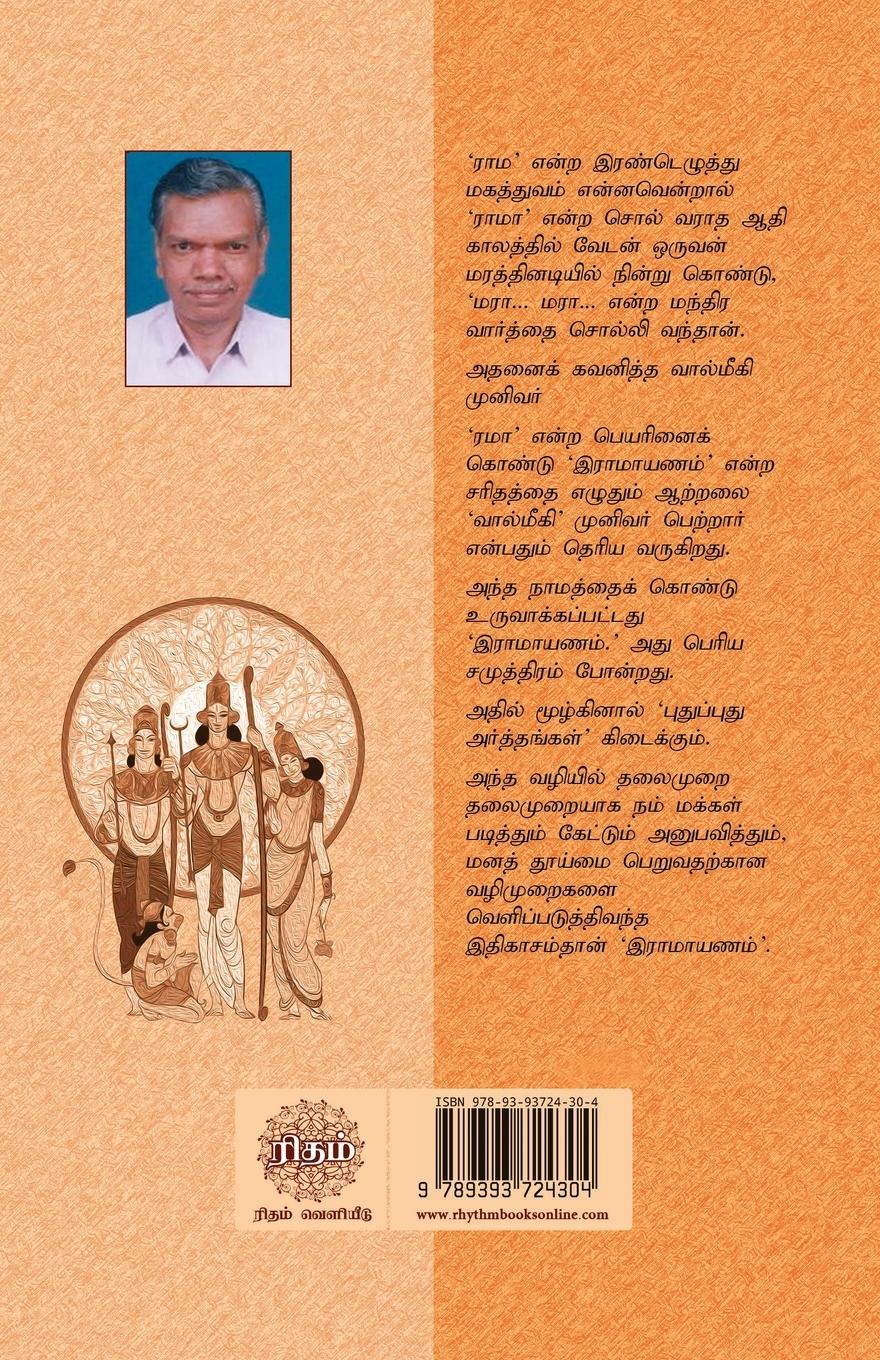 ‘ராம’ என்ற இரண்டெழுத்து
மகத்துவம் என்னவென்றால்
‘ராமா’ என்ற சொல் வராத ஆதி
காலத்தில் வேடன் ஒருவன்
மரத்தினடியில் நின்று கொண்டு,
‘மரா... மரா... என்ற மந்திர
வார்த்தை சொல்லி வந்தான்.
அதனைக் கவனித்த வால்மீகி
முனிவர்
‘ரமா’ என்ற பெயரினைக்
கொண்டு ‘இராமாயணம்’ என்ற
சரிதத்தை எழுதும் ஆற்றலை
‘வால்மீகி’ முனிவர் பெற்றார்
என்பதும் தெரிய வருகிறது.
அந்த நாமத்தைக் கொண்டு
உருவாக்கப்பட்டது
‘இராமாயணம்.’ அது பெரிய
சமுத்திரம் போன்றது.
அதில் மூழ்கினால் ‘புதுப்புது
அர்த்தங்கள்’ கிடைக்கும்.
அந்த வழியில் தலைமுறை
தலைமுறையாக நம் மக்கள்
படித்தும் கேட்டும் அனுபவித்தும்,
மனத் தூய்மை பெறுவதற்கான
வழிமுறைகளை
வெளிப்படுத்திவந்த
இதிகாசம்தான் ‘இராமாயணம்’.
ரிதம்
ரிதம் வெளியீடு
ISBN 978-93-93724-30-4
9 789393 724304
www.rhythmbooksonline.com